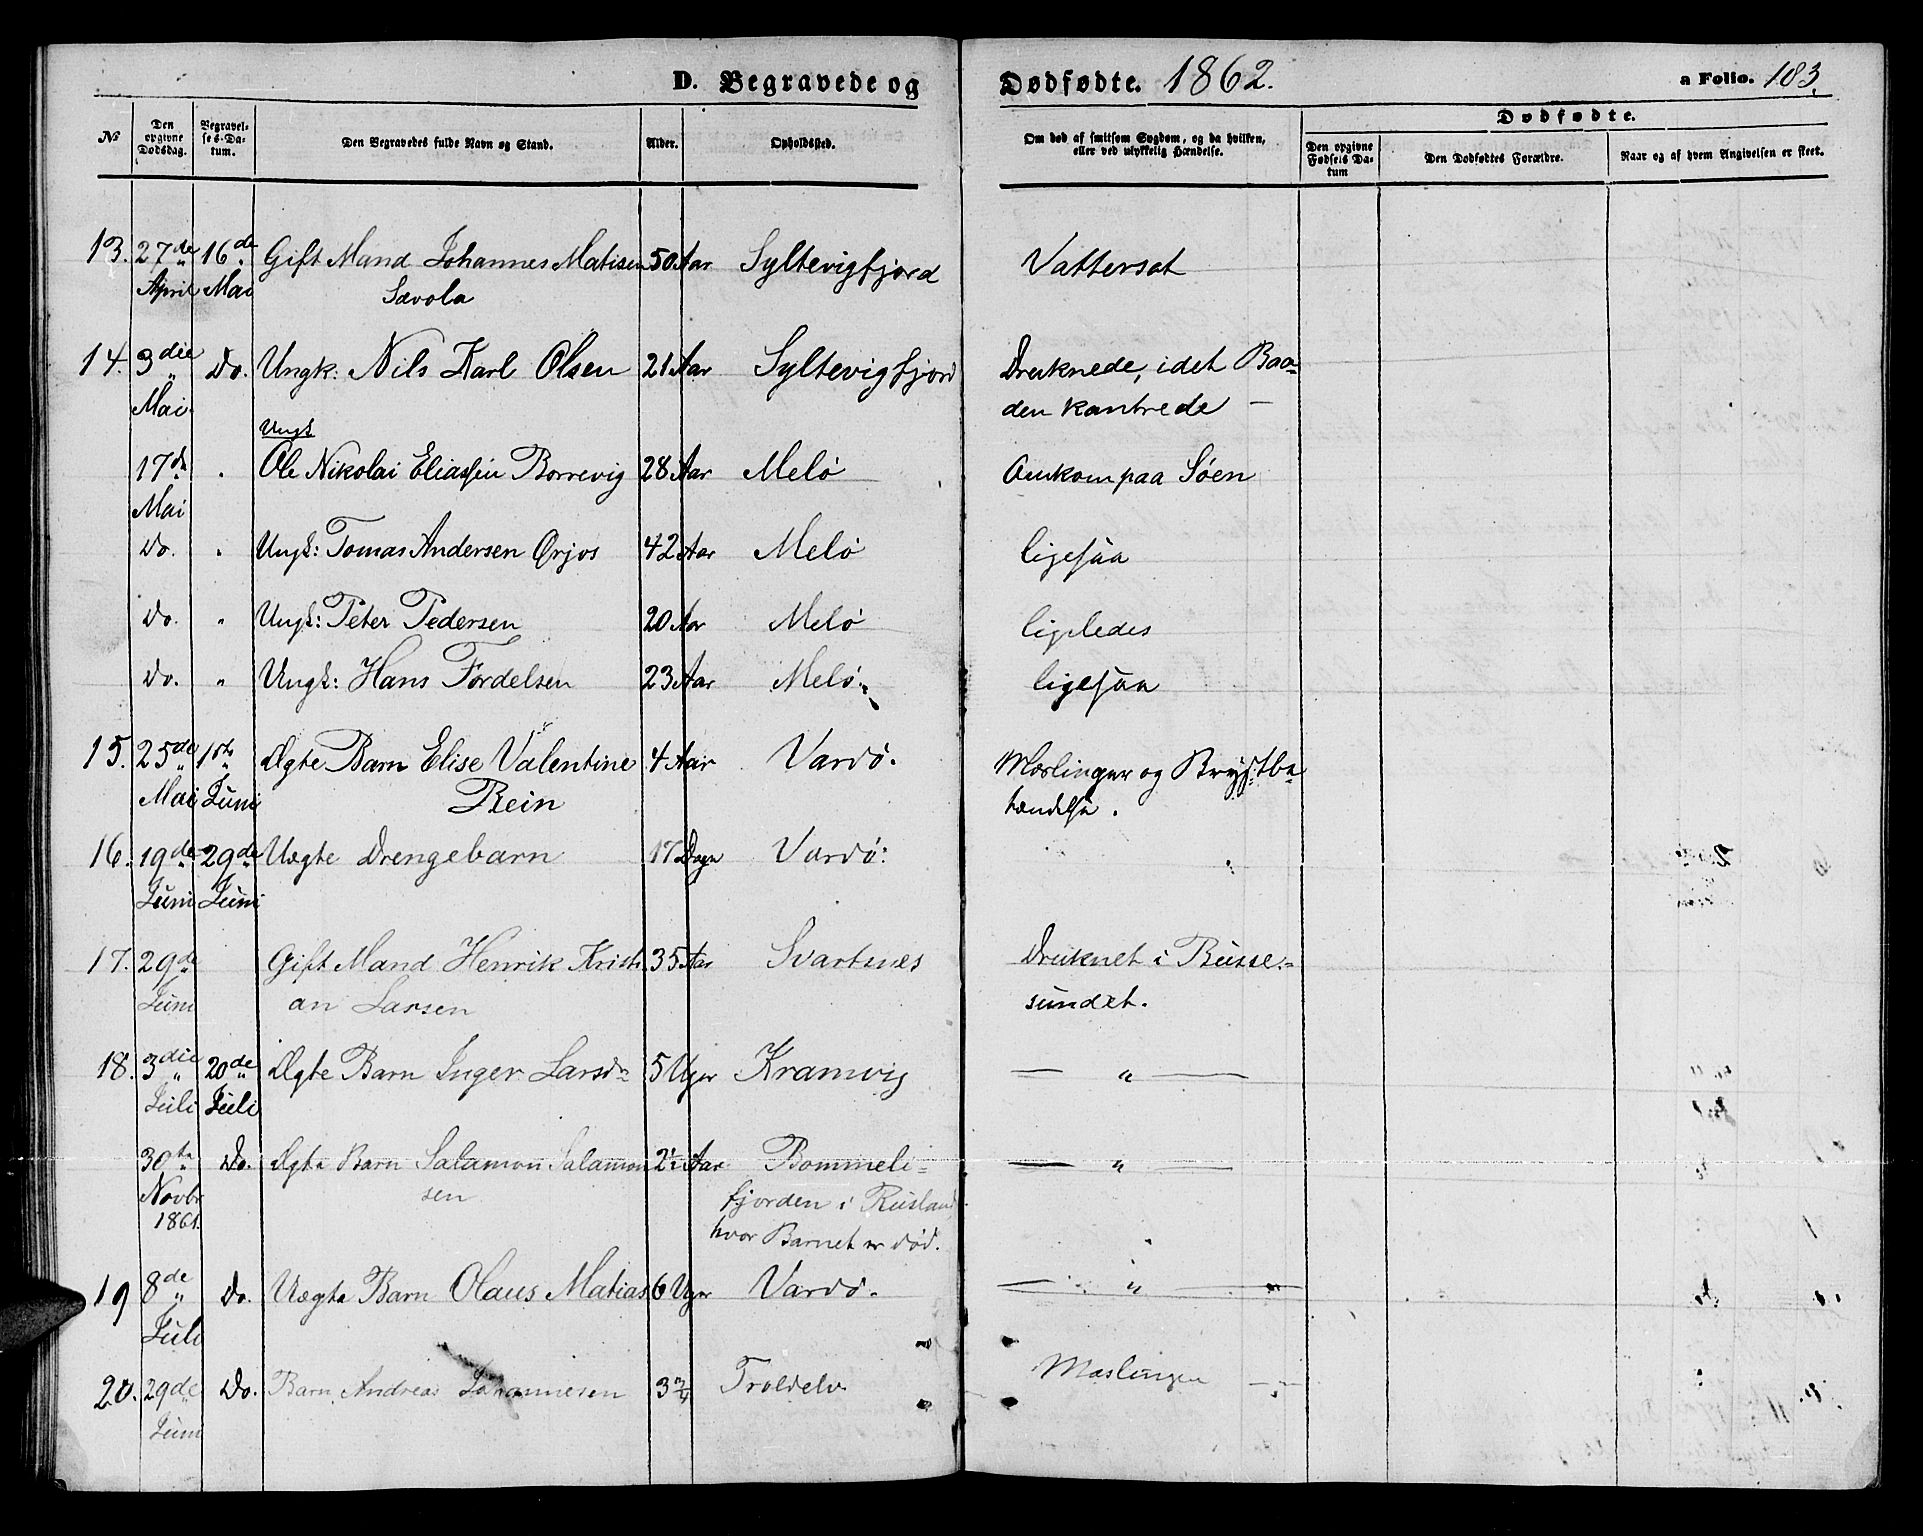 D. Begravede og Dødfødte. 1862. a Folio. 183.
Dødfødte.
No Den opgivne Dødsdag. Begravelses-Datum. Den Begravedes fulde Navn og Stand. Alder. Opholdssted. Om død af smitsom Sygdom, og da hvilken, eller ved ulykkelig Hændelse. Den opgivne Fødsels Datum Den Dødfødtes Forældre. Naar og af hvem Angivelsen er skeet.
13. 27de 16de Gift Mand Johannes Matisen 50 Aar Syltevigfjord Vattersot
April Mai Savola
14. 3die Do. Ungk: Nils Karl Olsen 21 Aar Syltevigfjord Druknede, idet Baa-
Mai. den kantrede —
Ungk
17de " Ole Nikolai Eliassen Borrevig 28 Aar Melö Omkom paa Söen
Mai
Do. " Ungk: Tomas Andersen Ørjos 42 Aar Melö ligesaa
Do. " Ungk: Peter Pedersen 20 Aar Melö ligeledes
Do. " Ungk: Hans Fordelsen 23 Aar Melö. ligesaa
15. 25de 1ste Ægte Barn Elise Valentine 4 Aar Vardö. Mæslinger og Brystbe-
Mai Juni Rein tændelse.
16. 19de 29de Uægte Drengebarn 17 Dage Vardö.
Juni Juni
17. 29de Gift Mand Henrik Kristi 35 Aar Svartnes Druknet i Busse-
Juni an Larsen sundet.
18. 3die 20de Ægte Barn Inger Larsdr 5 Uger Kramvig — " —
Juli Juli
30te Do. Ægte Barn Salamon Salamon 2½ Aar Bommeli- — " —
Novbr sen fjorden i Rusland
1861. hvor Barnet er död.
19 8de Do. Uægte Barn Olaus Matias 6 Uger Vardö. — " —
Juli
20. 29de Do. Barn Andreas Johannesen 3 Troldelv Mæslinger —
Juni